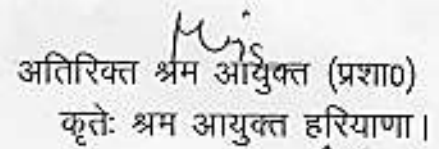 अतिरिक्त श्रम आयुक्त (प्रशा0)
कृतेः श्रम आयुक्त हरियाणा।